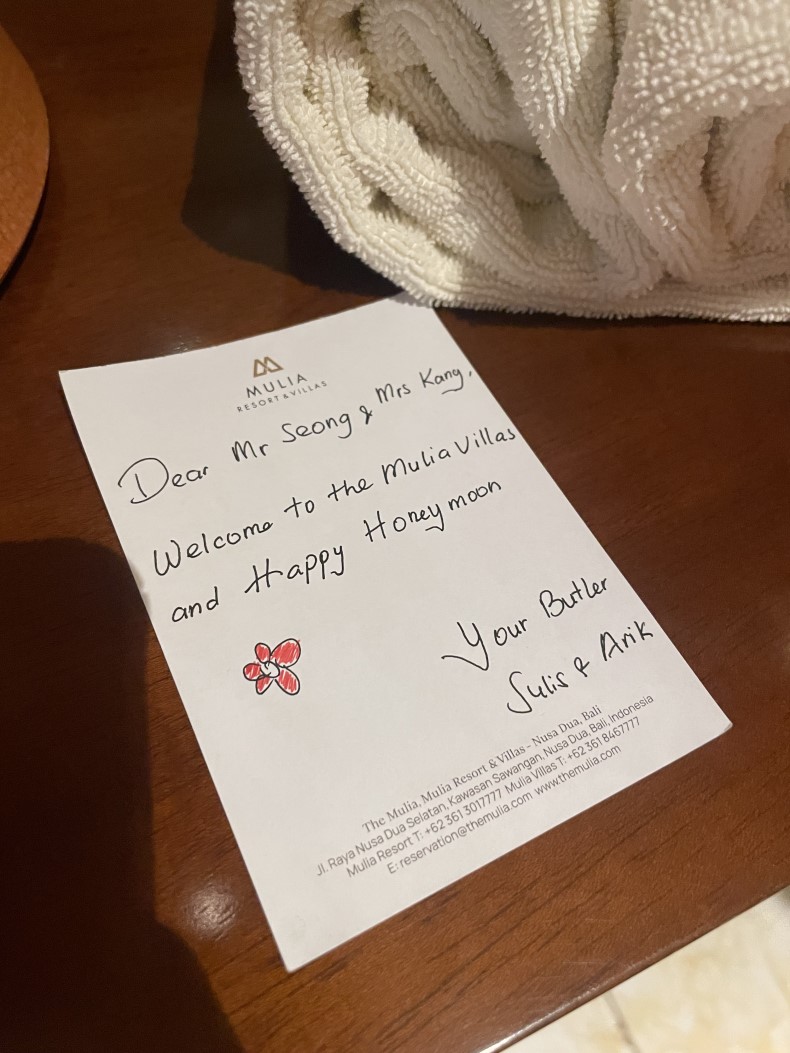 MULIA
RESORT & VILLAS
Dear Mr Seong & Mrs Kang,
Welcome to the Mulia Villas
and Happy Honeymoon
Your Butler
Sulis & Arik
The Mulia, Mulia Resort & Villas - Nusa Dua, Bali
Jl. Raya Nusa Dua Selatan, Kawasan Sawangan, Nusa Dua, Bali, Indonesia
Mulia Resort T: +62 361 3017777 Mulia Villas T: +62 361 8467777
E: reservation@themulia.com www.themulia.com